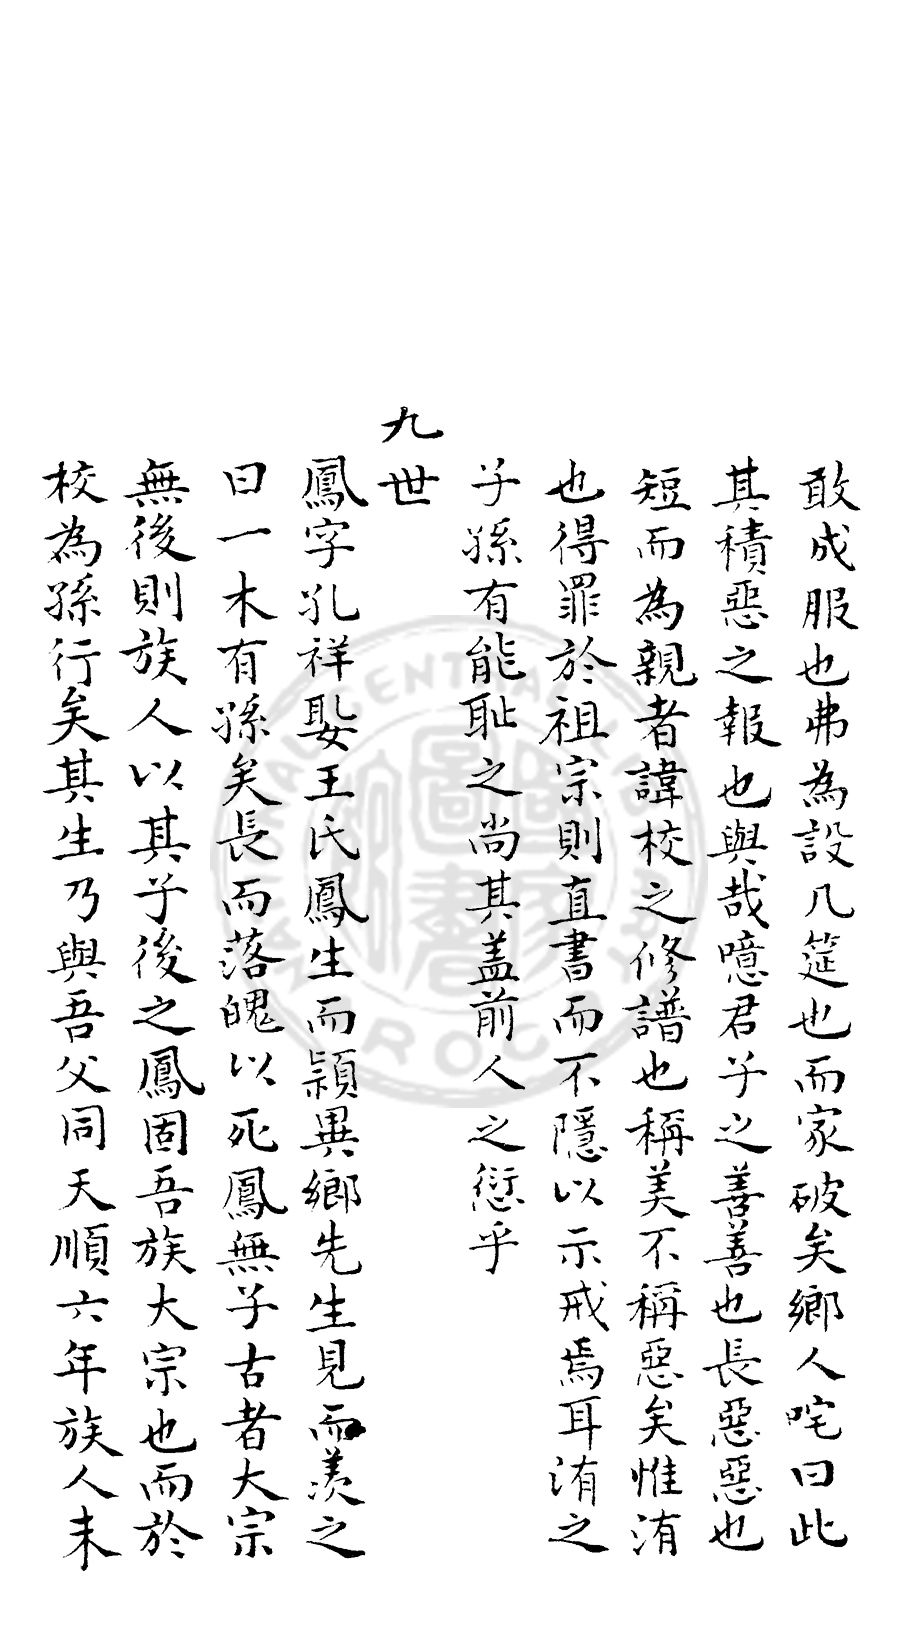 敢成服也弗為設几筵也而家破矣鄉人咤曰此
其積惡之報也與哉噫君子之善善也長惡惡也
短而為親者諱校之修譜也稱美不稱惡矣惟洧
也得罪於祖宗則直書而不隱以示戒焉耳洧之
子孫有能耻之尚其盖前人之愆乎
九世
鳳字孔祥娶王氏鳳生而頴異鄉先生見而羨之
曰一木有孫矣長而落魄以死鳳無子古者大宗
無後則族人以其子後之鳳固吾族大宗也而於
校為孫行矣其生乃與吾父同天順六年族人未